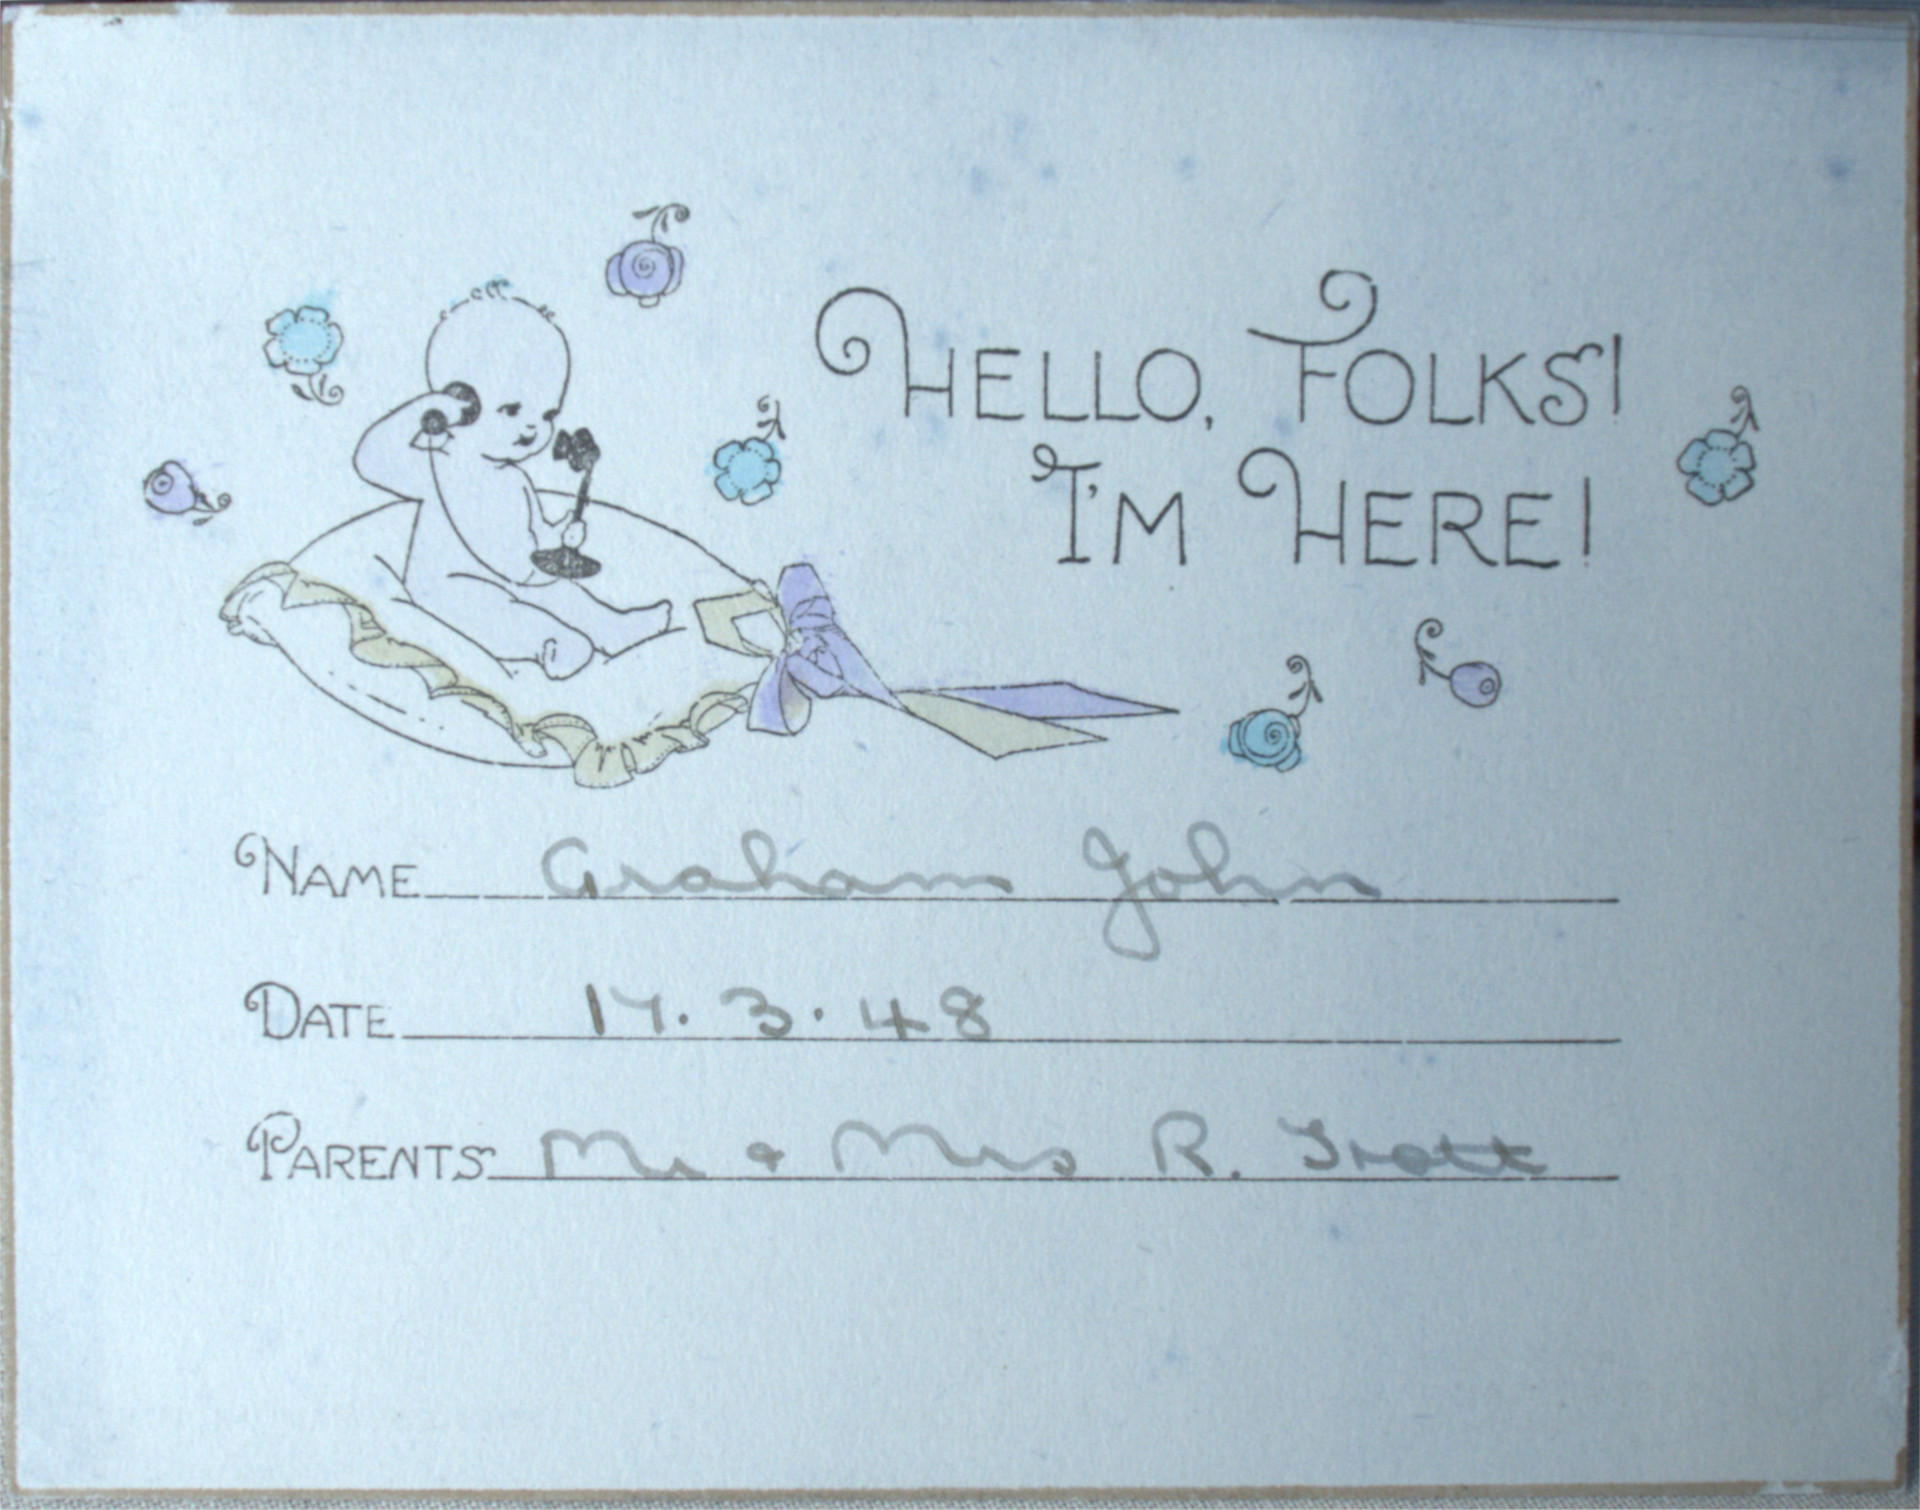 HELLO, FOLKS!
I'M HERE!
NAME Graham John
DATE 17.3.48
PARENTS Mr & Mrs R. Trott